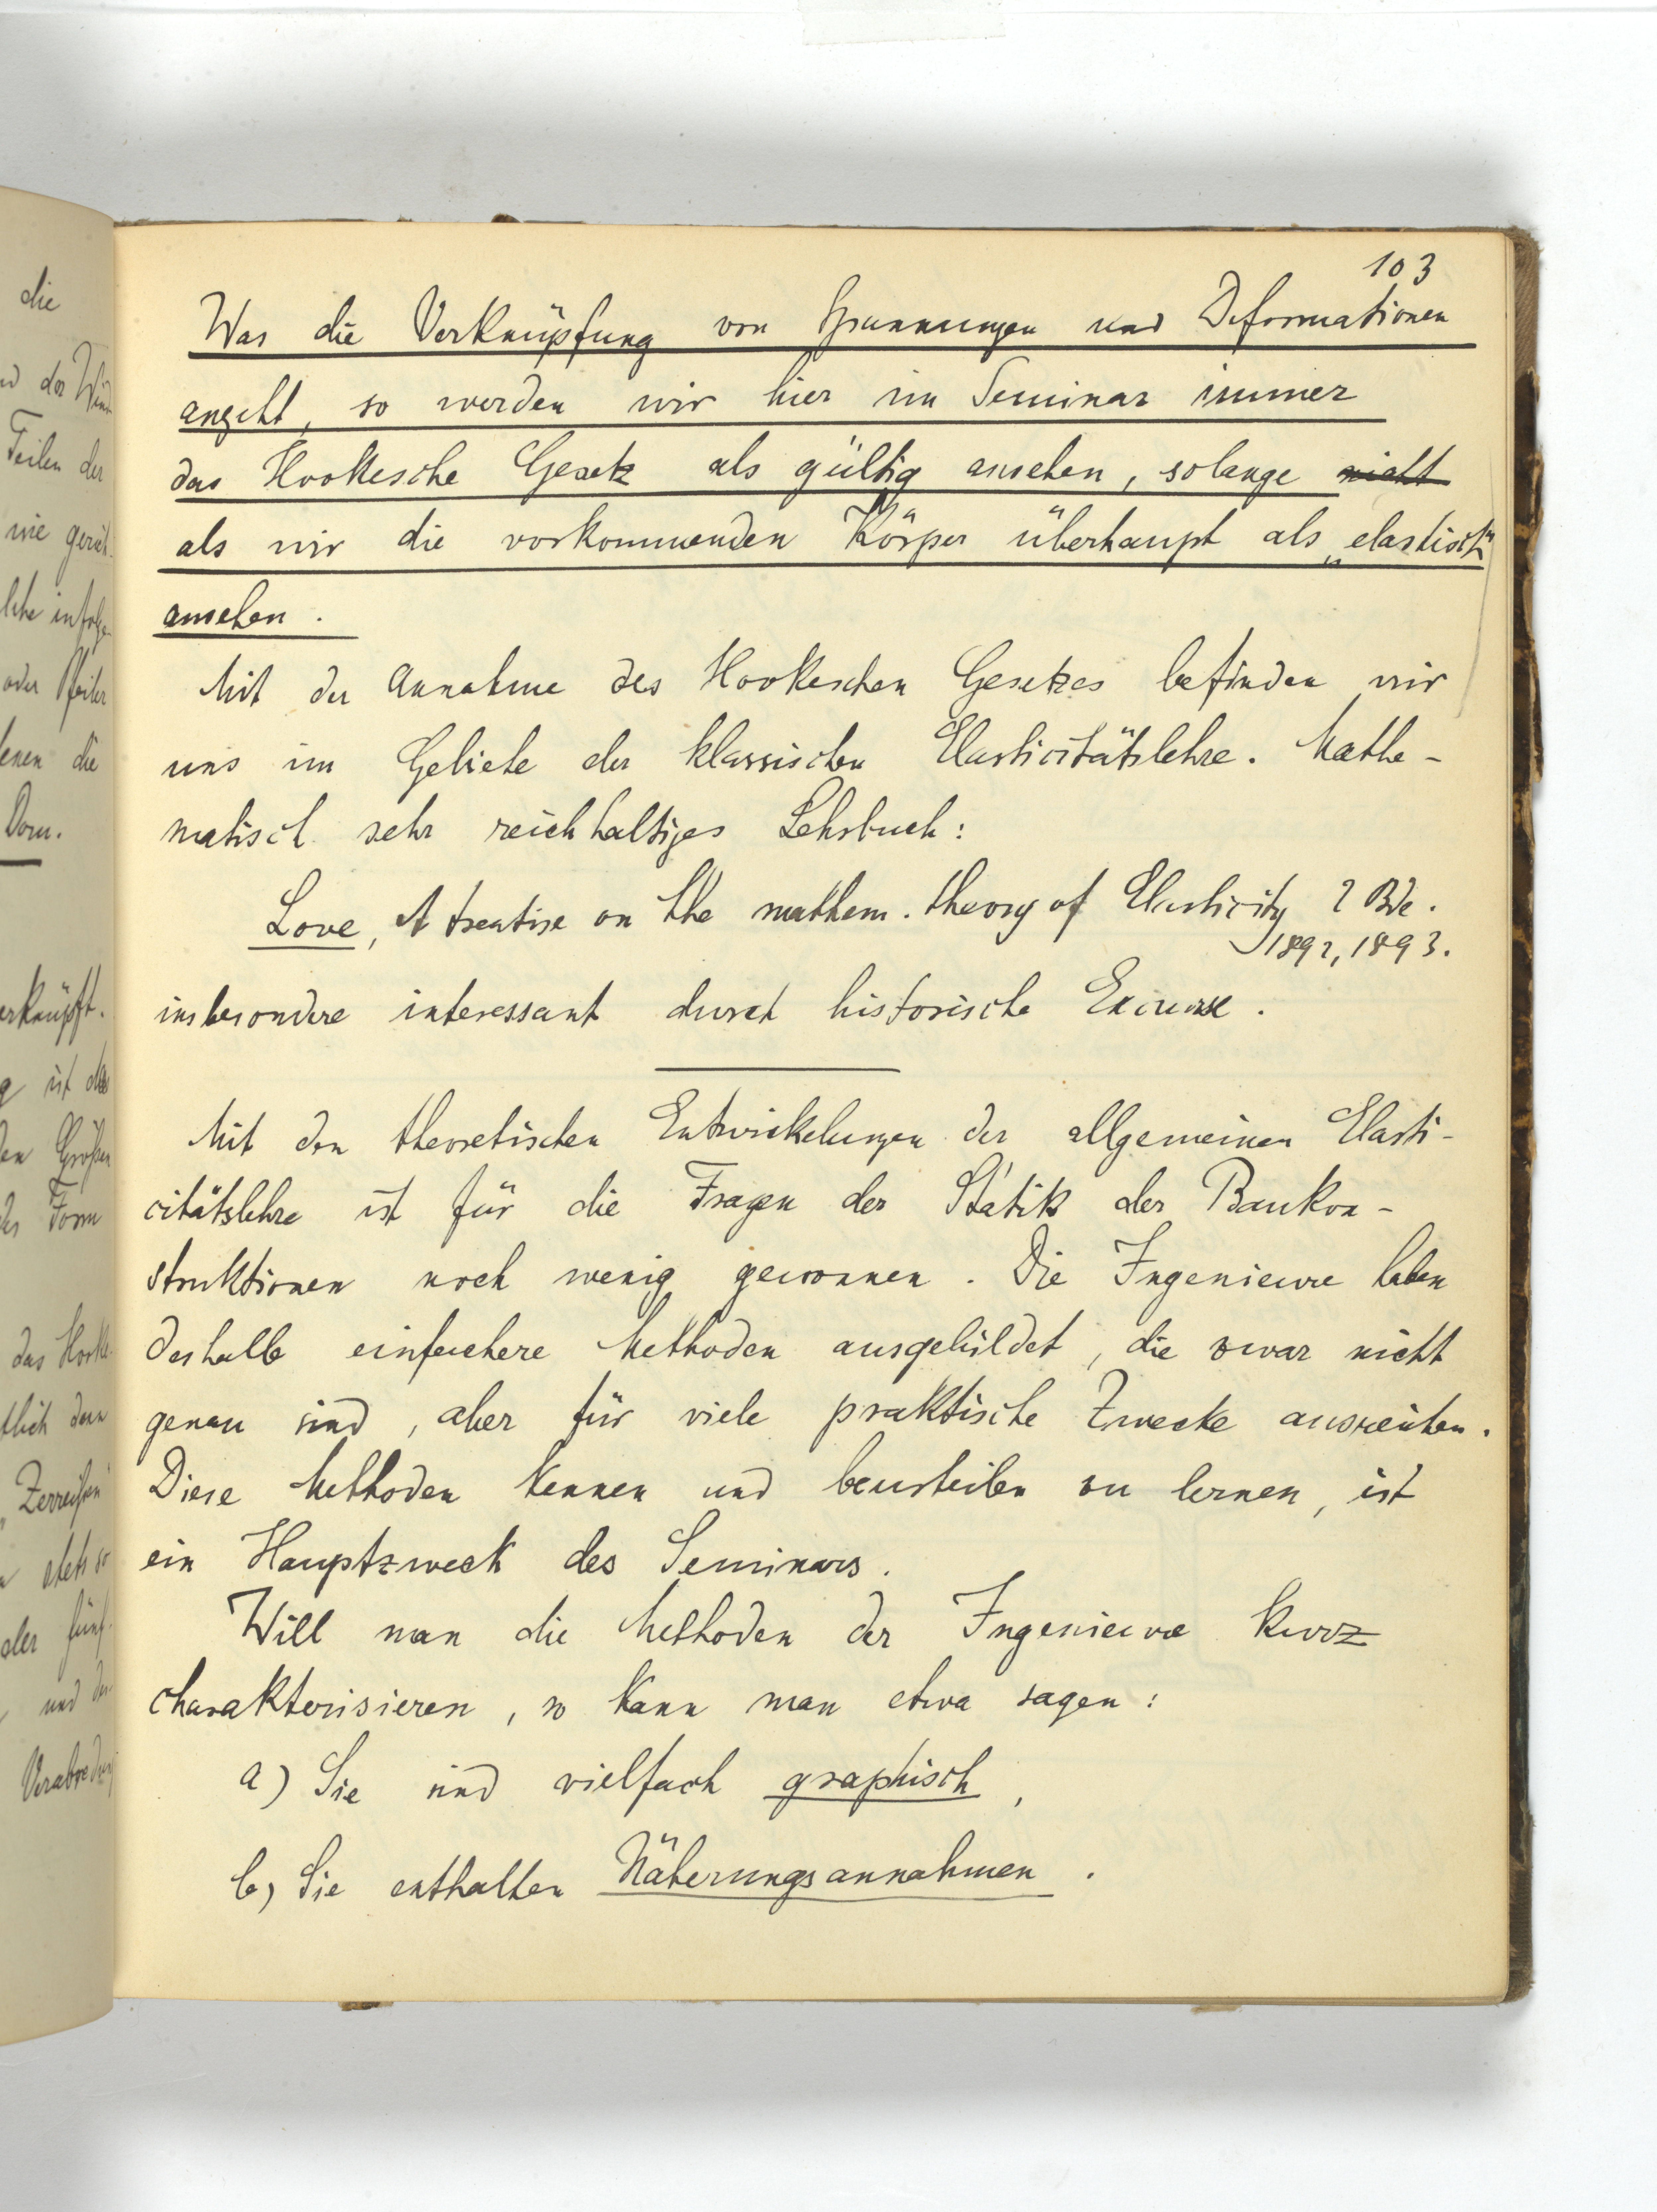 103
Was die Verknüpfung von Spannungen und Deformationen
angeht, so werden wir hier im Seminar immer
das Hookesche Gesetz als gültig ansehen, solange nicht
als wir die vorkommenden Körper überhaupt als „elastisch“
ansehen.
Mit der Annahme des Hookeschen Gesetzes befinden wir
uns im Gebiete der klassischen Elasticitätslehre. Mathe-
matisch sehr reichhaltiges Lehrbuch:
Love, A treatise on the mathem. theory of Elasticity 2 Bde.
1892, 1893.
insbesondere interessant durch historische Excurse.
Mit den theoretischen Entwickelungen der allgemeinen Elasti-
citätslehre ist für die Fragen der Statik der Baukon-
struktionen noch wenig gewonnen. Die Ingenieure haben
deshalb einfachere Methoden ausgebildet, die zwar nicht
genau sind, aber für viele praktische Zwecke ausreichen.
Diese Methoden kennen und beurteilen zu lernen, ist
ein Hauptzweck des Seminars.
Will man die Methoden der Ingenieure kurz
charakterisieren, so kann man etwa sagen:
a) Sie sind vielfach graphisch,
b) Sie enthalten Näherungsannahmen.